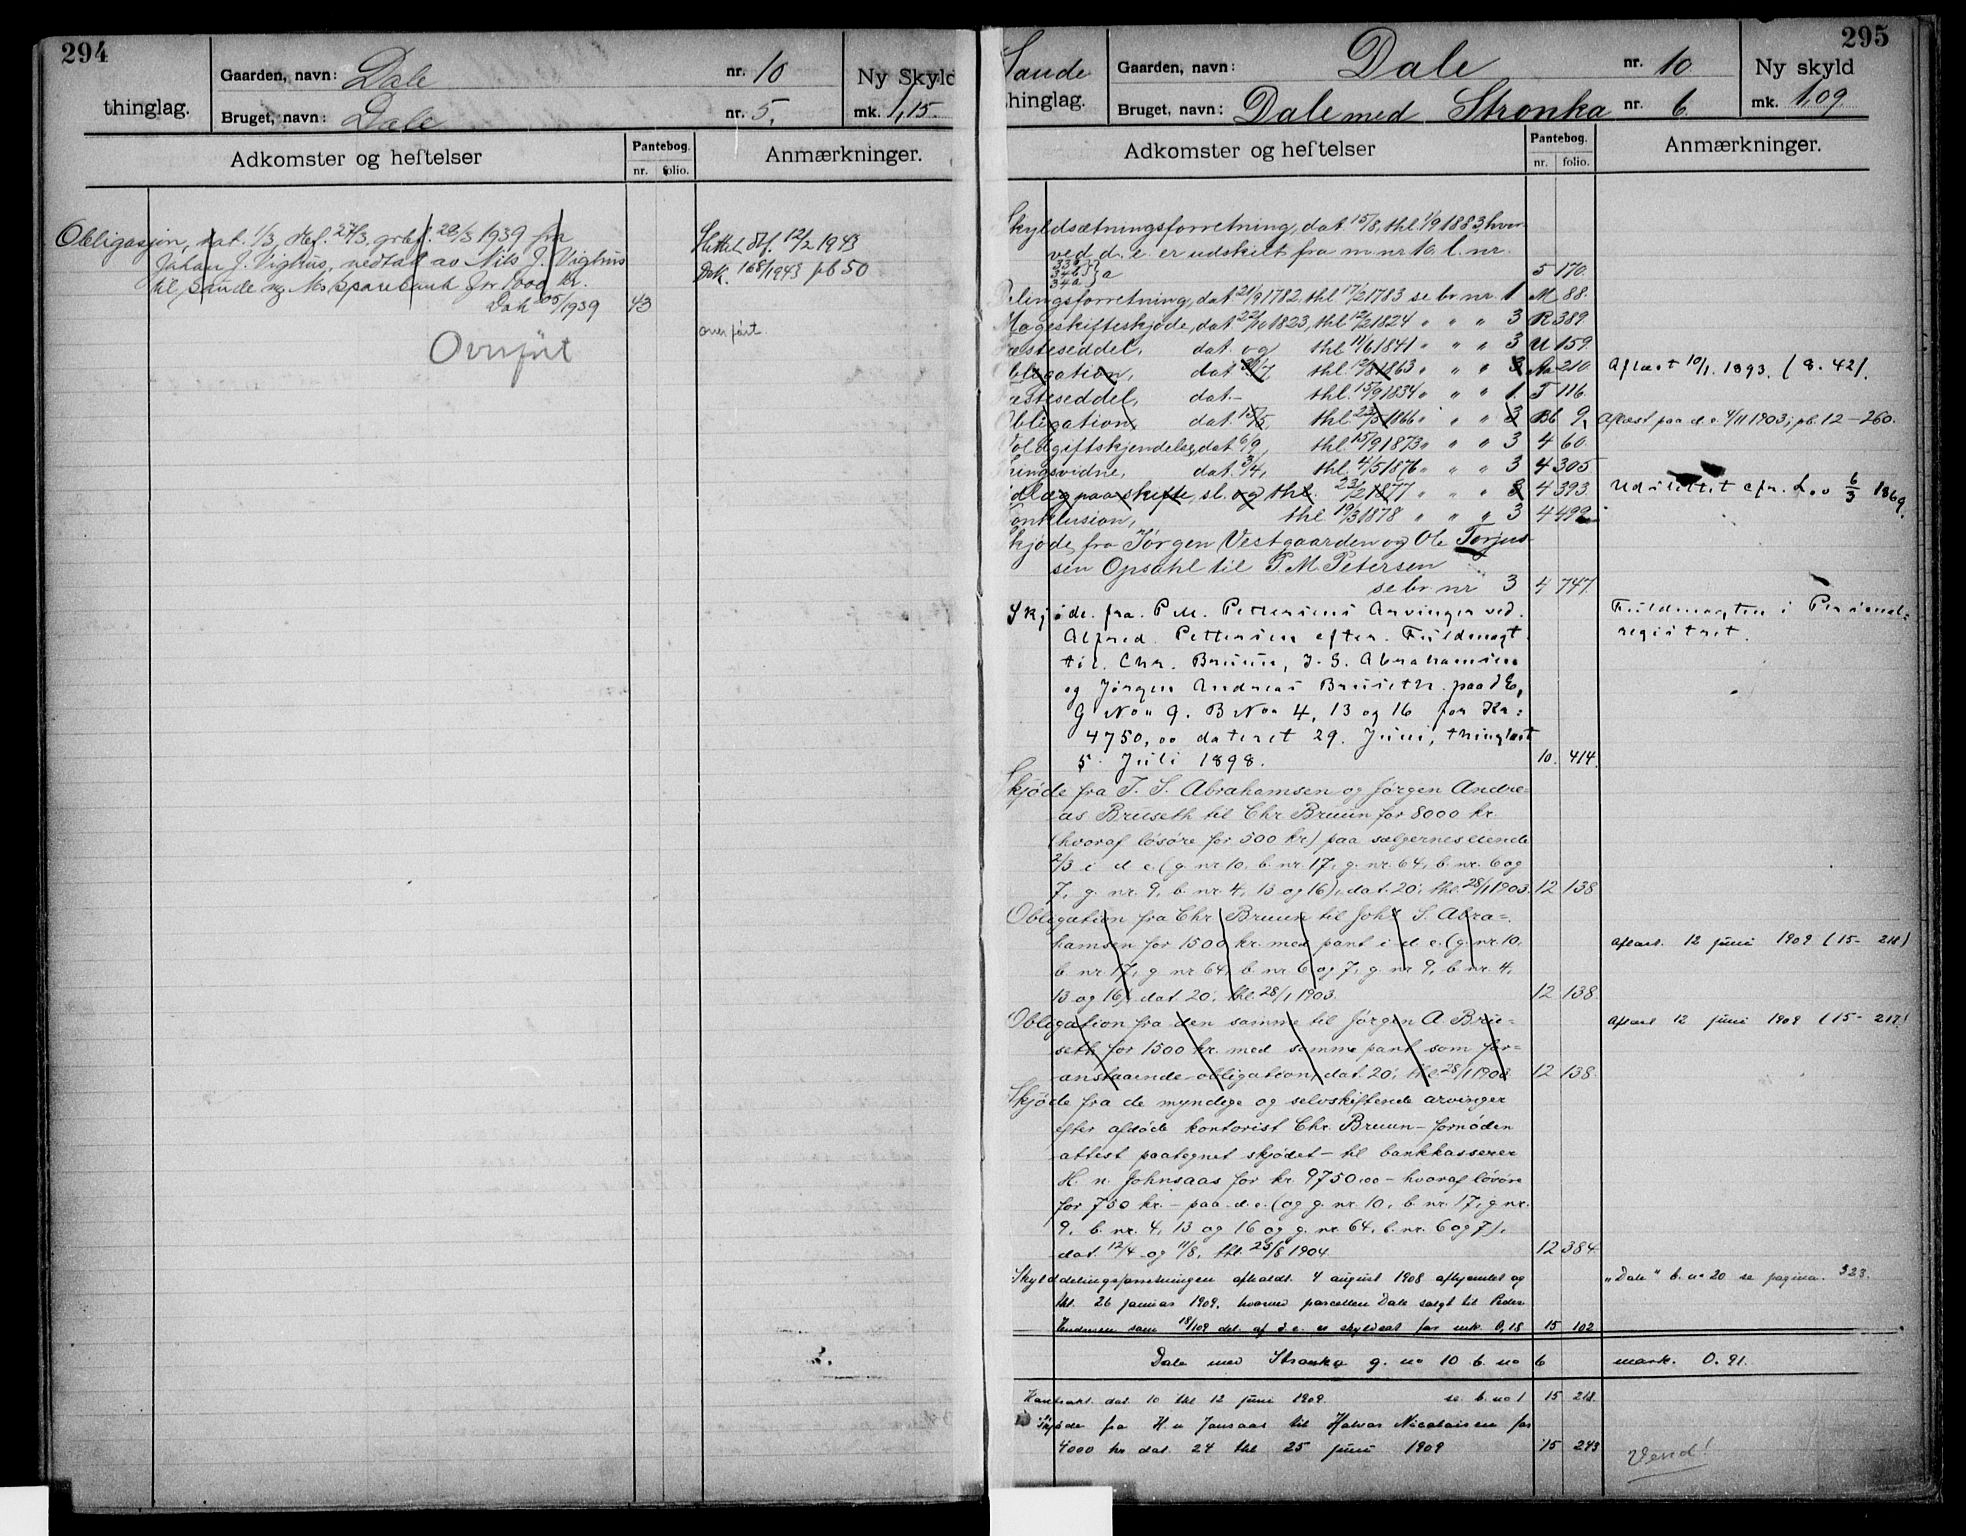 294
thinglag.
Gaarden, navn: Dale nr. 10
Bruget, navn: Dale nr. 5.
Ny Skyld
mk. 1,15.
Adkomster og heftelser
Pantebog.
nr. folio.
Anmærkninger.
Obligasjon, dat. 1/3, 27/3, 28/3 1939 fra
Johan J. Vighus, vedtat av Nils J. Vighus
til Sande og Sparebank for 1000 kr.
1939 43
Overført
Slettet 12/2 1943
Dok. 168/1943 pb 50
overført.
295
Sande
thinglag.
Gaarden, navn: Dale nr. 10
Bruget, navn: Dale med Stronka nr. 6
Ny skyld
mk. 1,09
Adkomster og heftelser
Pantebog.
nr. folio.
Anmærkninger.
Skyldsætningsforretning, dat. 15/8, thl. 1/9 1883, hvor
ved d. e. er udskilt fra m. nr. 10 l. nr.
33b
34b } a
34a 5 170.
Delingsforretning, dat. 21/9 1782, thl. 17/2 1783 se br. nr. 1 M 88.
Mageskifteskjøde, dat. 22/10 1823, thl. 12/2 1824 " " " 3 R 389
Fæsteseddel, dat. og thl. 11/6 1841 " " " 3 U 159.
Obligation, dat. thl. 12/8 1863 " " " 3 Aa 210 Aflæst 10/1. 1893. (8. 42).
Fæsteseddel, dat. - thl. 15/9 1834 " " " 1. T 116.
Obligation, dat. 15/5 thl. 23/5 1866 " " " 3 Bb 9. Aflæst paa d. e. 4/11 1903; pb. 12 - 260.
Voldgiftskjendelse, dat. 6/9, thl. 15/9 1873 " " " 3 4 60.
Thingsvidne, dat. 3/4, thl. 4/5 1876 " " " 3 4 305
Udlæg paa skifte, sl. og thl. 23/2 1877 " " " 3 4 393. Udslettet cfr. Lov 6/3 1869.
Konklusion, thl. 19/3 1878 " " " 3 4 492
Skjøde fra Jørgen Vestgaarden og Ole Torjus-
sen Opsahl til P. M. Petersen
se br. nr. 3 4 747.
Skjøde. fra. P. M. Pettersens Arvinger ved.
Alfred. Pettersen efter. Fuldmagt
til. Chr. Bruun, J. S. Abrahamsen
og Jørgen Andreas Bruseth. paa d E,
G No 9. B No 4, 13 og 16 for Kr:
4750,00 dateret 29. Juni, thinglæst
5. Juli 1898. 10. 414.
Fuldmagten i Personal=
registret.
Skjøde fra J. S. Abrahamsen og Jørgen Andre-
as Bruseth til Chr Bruun for 8000 kr.
(hvoraf løsøre for 500 kr) paa sælgernes eiende
2/3 i d. e. (g. nr. 10, b. nr. 17, g. nr. 64, b. nr. 6 og
7, g. nr. 9, b. nr. 4, 13 og 16), dat. 20, thl. 28/1 1903. 12 138
Obligation fra Chr. Bruun til Joh. S. Abra=
hamsen for 1500 kr. med pant i d. e. (g. nr. 10,
b. nr. 17, g. nr. 64, b. nr. 6 og 7, g. nr. 9, b. nr. 4,
13 og 16), dat. 20, thl. 28/1 1903. 12 138.
Aflæst. 12 juni 1909 (15 - 218)
Obligation fra den samme til Jørgen A. Bru=
seth for 1500 kr. med samme pant som for=
anstaaende obligation, dat. 20, thl. 28/1 1903 12 138.
Aflæst 12 juni 1909 (15 - 217)
Skjøde fra de myndige og selvskiftende arvinger
efter afdøde kontorist Chr. Bruun - fornøden
attest paategnet skjødet - til bankkasserer
H. N. Johnsaas for kr. 9750.00 - hvoraf løsøre
for 750 kr. - paa d. e. (og g. nr. 10, b. nr. 17, g. nr.
9, b. nr. 4, 13 og 16 og g. nr. 64, b. nr. 6 og 7),
dat. 12/4 og 11/8, thl. 23/8 1904. 12 384
Skylddelingsforretningen afholdt 4 august 1908 afhjemlet og
thl. 26 januar 1909, hvorved parcellen Dale solgt til Peder
som 18/109 del. af d. e. er skyldsat for mk. 0,18 15 102
"Dale" b. no 20 se pagina. 323.
Dale med Stronka g. no 10 b. no 6 mark. 0.91.
Kontrakt dat. 10 thl 12 juni 1909. se. b. no 1 15 218.
Skjøde fra H. N. Jonsaas til Halvor Nicolaisen for
4000 kr dat. 24 thl 25 juni 1909 15 243
Vend!